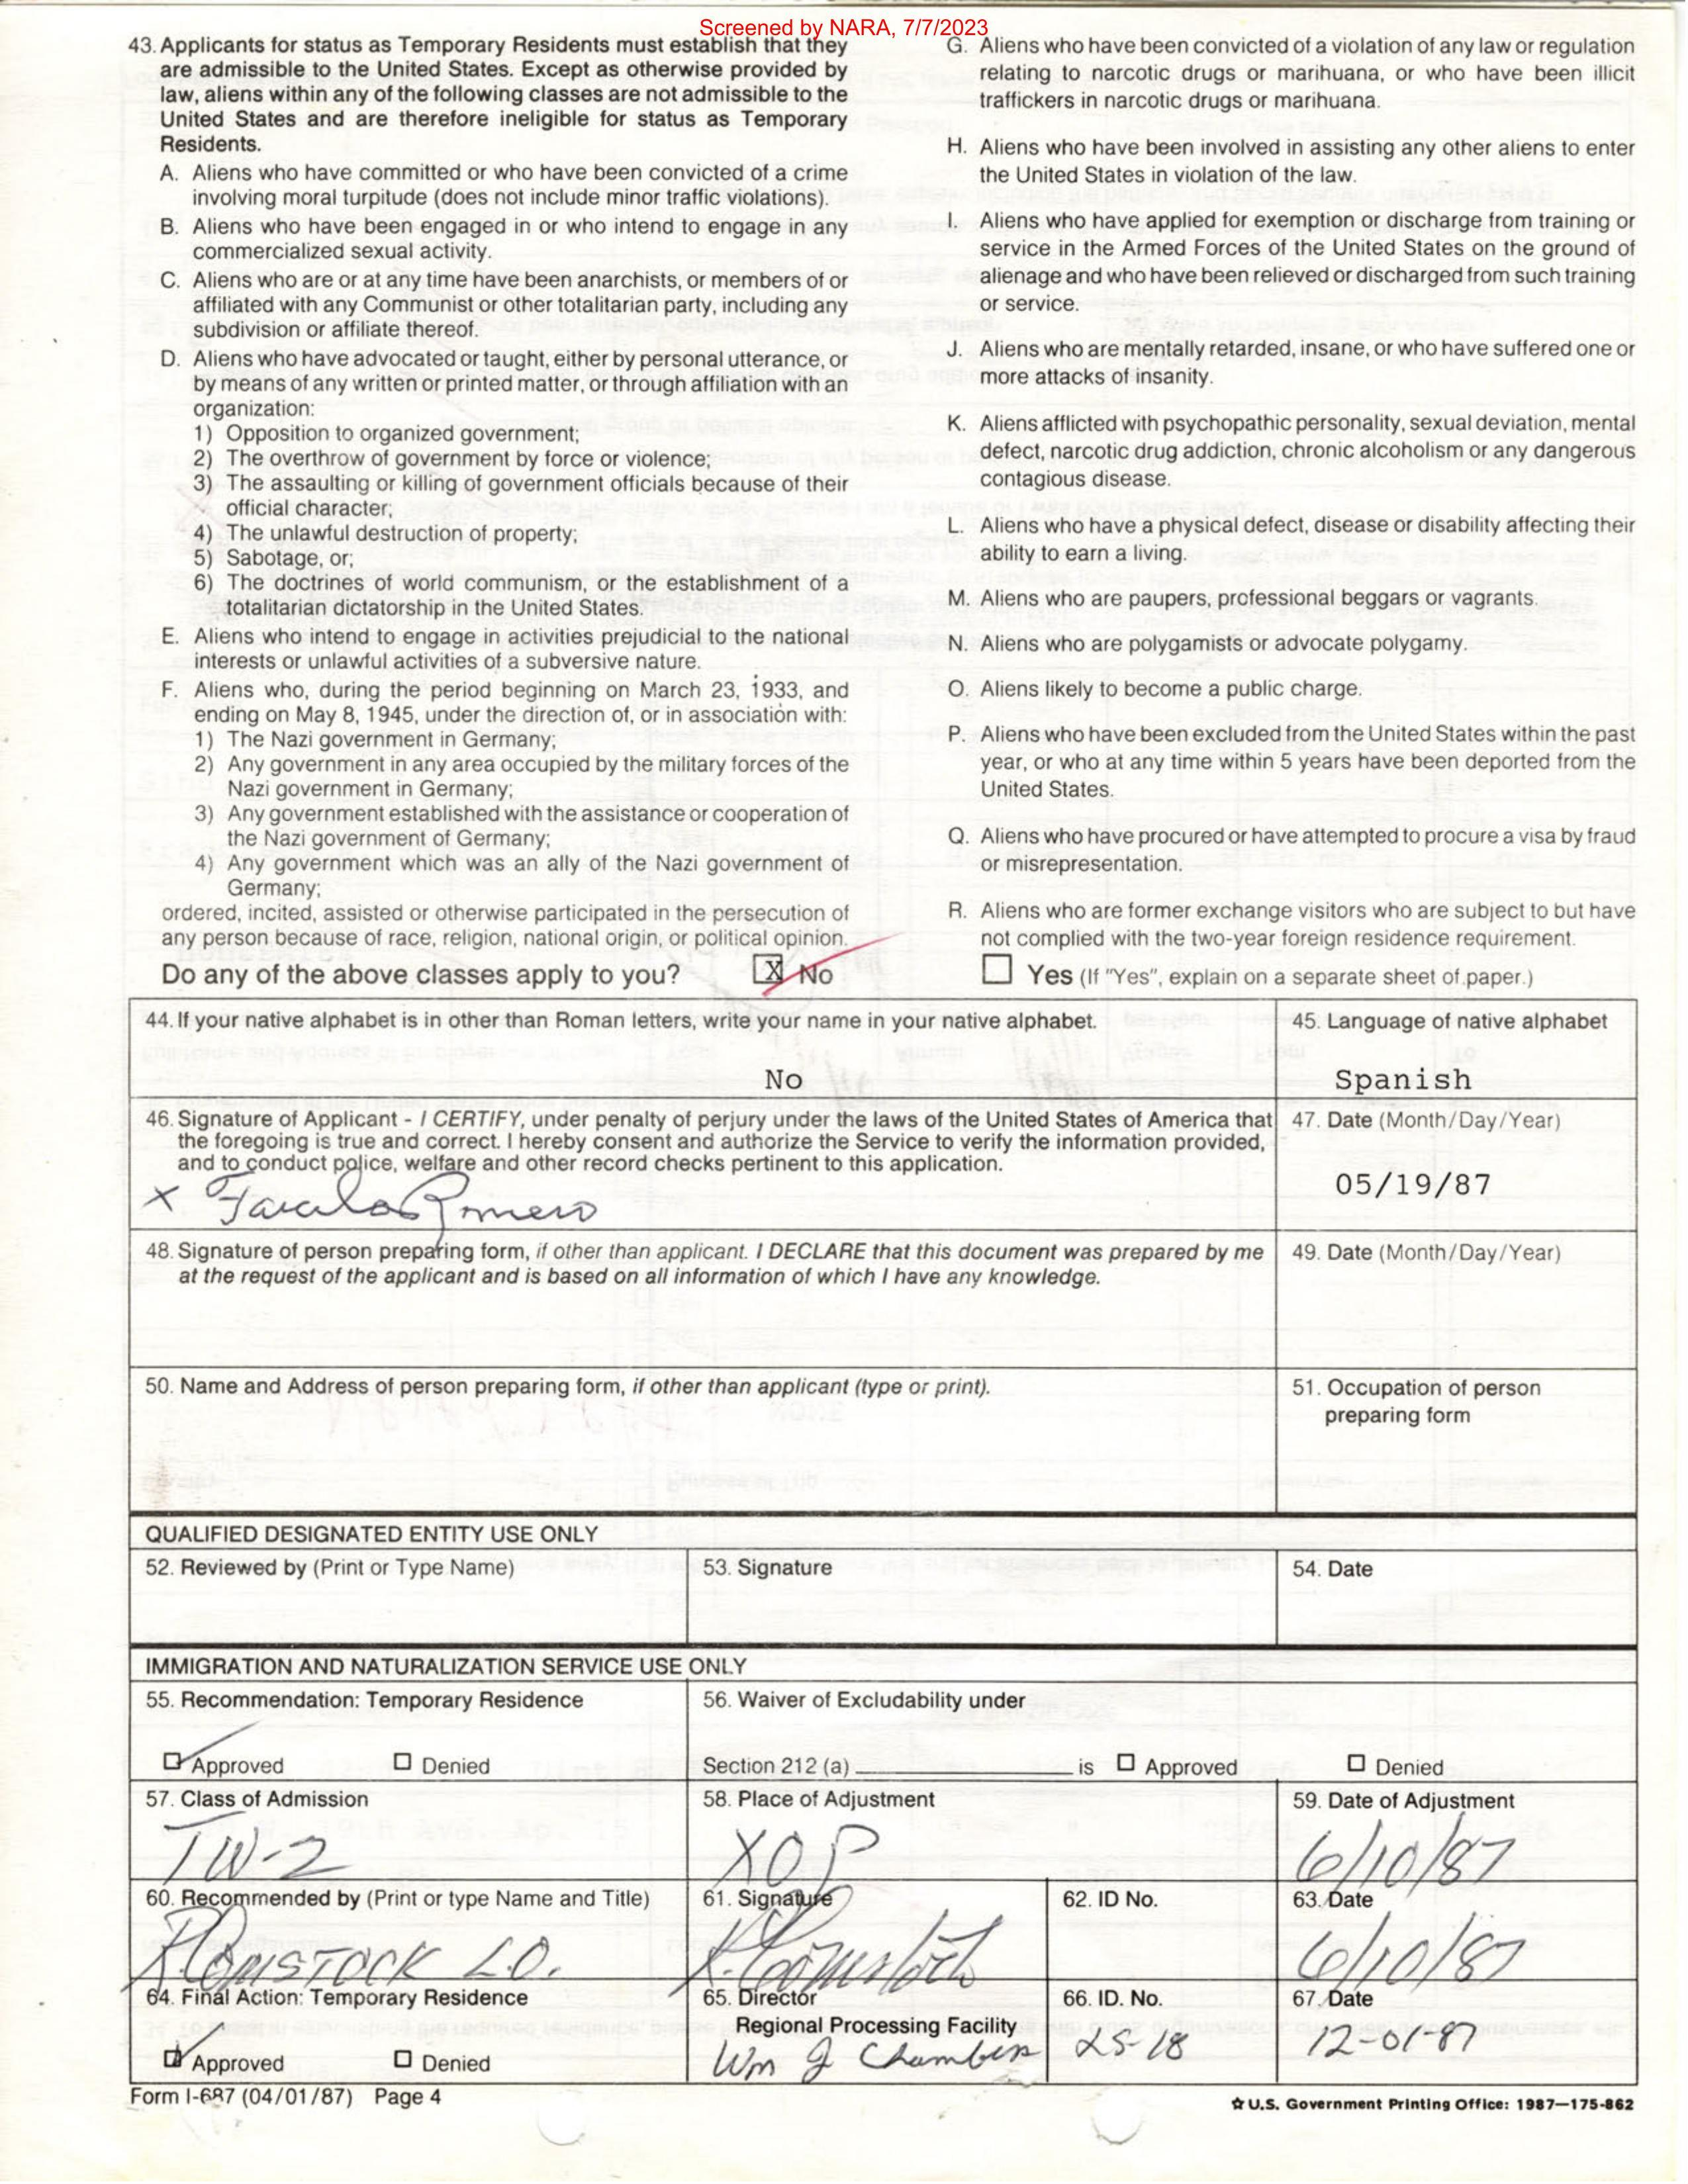 Screened by NARA, 7/7/2023
43. Applicants for status as Temporary Residents must establish that they
are admissible to the United States. Except as otherwise provided by
law, aliens within any of the following classes are not admissible to the
United States and are therefore ineligible for status as Temporary
Residents.
A. Aliens who have committed or who have been convicted of a crime
involving moral turpitude (does not include minor traffic violations).
B. Aliens who have been engaged in or who intend to engage in any
commercialized sexual activity.
C. Aliens who are or at any time have been anarchists, or members of or
affiliated with any Communist or other totalitarian party, including any
subdivision or affiliate thereof.
D. Aliens who have advocated or taught, either by personal utterance, or
by means of any written or printed matter, or through affiliation with an
organization:
1) Opposition to organized government;
2) The overthrow of government by force or violence;
3) The assaulting or killing of government officials because of their
official character;
4) The unlawful destruction of property;
5) Sabotage, or;
6) The doctrines of world communism, or the establishment of a
totalitarian dictatorship in the United States.
E. Aliens who intend to engage in activities prejudicial to the national
interests or unlawful activities of a subversive nature.
F. Aliens who, during the period beginning on March 23, 1933, and
ending on May 8, 1945, under the direction of, or in association with:
1) The Nazi government in Germany;
2) Any government in any area occupied by the military forces of the
Nazi government in Germany;
3) Any government established with the assistance or cooperation of
the Nazi government of Germany;
4) Any government which was an ally of the Nazi government of
Germany;
ordered, incited, assisted or otherwise participated in the persecution of
any person because of race, religion, national origin, or political opinion.
G. Aliens who have been convicted of a violation of any law or regulation
relating to narcotic drugs or marihuana, or who have been illicit
traffickers in narcotic drugs or marihuana.
H. Aliens who have been involved in assisting any other aliens to enter
the United States in violation of the law.
I. Aliens who have applied for exemption or discharge from training or
service in the Armed Forces of the United States on the ground of
alienage and who have been relieved or discharged from such training
or service.
J. Aliens who are mentally retarded, insane, or who have suffered one or
more attacks of insanity.
K. Aliens afflicted with psychopathic personality, sexual deviation, mental
defect, narcotic drug addiction, chronic alcoholism or any dangerous
contagious disease.
L. Aliens who have a physical defect, disease or disability affecting their
ability to earn a living.
M. Aliens who are paupers, professional beggars or vagrants.
N. Aliens who are polygamists or advocate polygamy.
O. Aliens likely to become a public charge.
P. Aliens who have been excluded from the United States within the past
year, or who at any time within 5 years have been deported from the
United States.
Q. Aliens who have procured or have attempted to procure a visa by fraud
or misrepresentation.
R. Aliens who are former exchange visitors who are subject to but have
not complied with the two-year foreign residence requirement.
Do any of the above classes apply to you? X No Yes (If "Yes", explain on a separate sheet of paper.)
44. If your native alphabet is in other than Roman letters, write your name in your native alphabet.
No
45. Language of native alphabet
Spanish
46. Signature of Applicant - I CERTIFY, under penalty of perjury under the laws of the United States of America that
the foregoing is true and correct. I hereby consent and authorize the Service to verify the information provided,
and to conduct police, welfare and other record checks pertinent to this application.
X Romero
47. Date (Month/Day/Year)
05/19/87
48. Signature of person preparing form, if other than applicant. I DECLARE that this document was prepared by me
at the request of the applicant and is based on all information of which I have any knowledge.
49. Date (Month/Day/Year)
50. Name and Address of person preparing form, if other than applicant (type or print).
51. Occupation of person
preparing form
QUALIFIED DESIGNATED ENTITY USE ONLY
52. Reviewed by (Print or Type Name)
53. Signature
54. Date
IMMIGRATION AND NATURALIZATION SERVICE USE ONLY
55. Recommendation: Temporary Residence
Approved Denied
56. Waiver of Excludability under
Section 212 (a) is Approved Denied
57. Class of Admission
TW-2
58. Place of Adjustment
XOP
59. Date of Adjustment
6/10/87
60. Recommended by (Print or type Name and Title)
K. COMSTOCK L.O.
61. Signature
K. Comstock
62. ID No.
63. Date
6/10/87
64. Final Action: Temporary Residence
Approved Denied
65. Director
Regional Processing Facility
Wm J Chambers
66. ID. No.
25-18
67. Date
12-01-87
Form I-687 (04/01/87) Page 4
☆ U.S. Government Printing Office: 1987—175-862